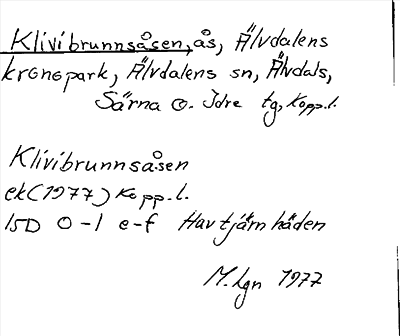 Klivibrunnsåsen, ås, Älvdalens
kronopark, Älvdalens sn, Älvdals,
Särna o. Idre tg, Kopp.l.
Klivibrunnsåsen
ek (1977) Kopp.l.
15D 0-1 e-f Havtjärnhäden
M.Lgn 1977